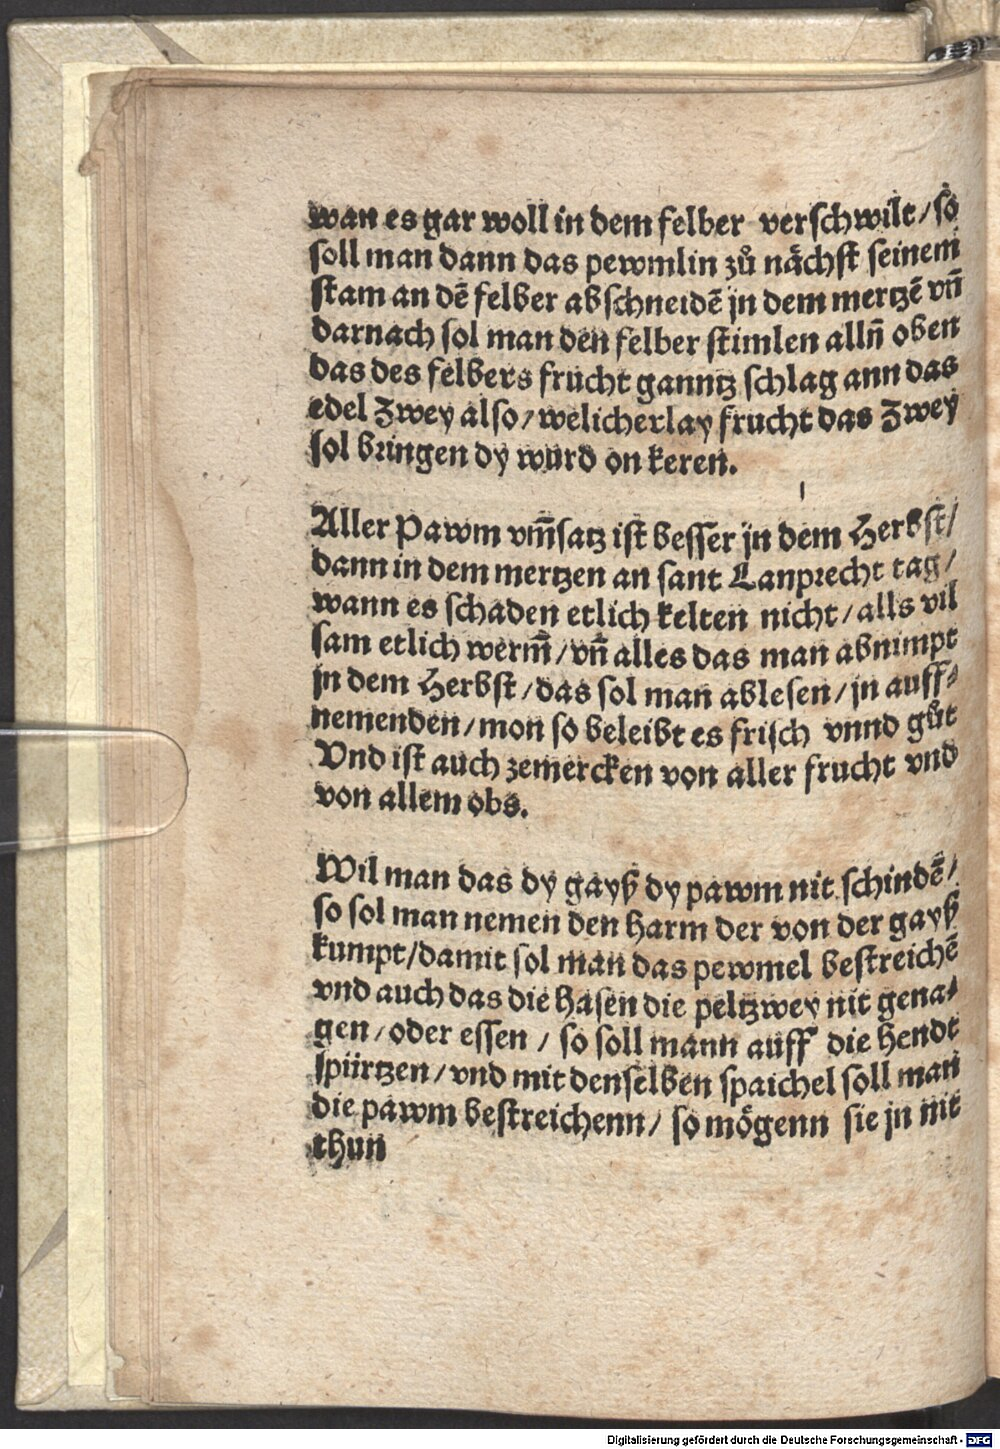 wan es gar woll in dem felber verschwilt/so
soll man dann das pewmlin zů nächst seinem
stam an dē felber abschneidē jn dem mertzē vn̄
darnach sol man den felber stimlen alln̄ oben
das des felbers frucht ganntz schlag ann das
edel Zwey also/welicherlay frucht das Zwey
sol bringen dy wurd on keren.
Aller Pawm vm̄satz ist besser jn dem Herbst/
dann in dem mertzen an sant Lanprecht tag/
wann es schaden etlich kelten nicht/alls vil
sam etlich werm̄/vn̄ alles das man abnimpt
jn dem Herbst/das sol man ablesen/jn auff⸗
nemenden/mon so beleibt es frisch vnnd gůt
Vnd ist auch zemercken von aller frucht vnd
von allem obs.
Wil man das dy gayß dy pawm nit schindē/
so sol man nemen den harm der von der gayß
kumpt/damit sol man das pewmel bestreichē
vnd auch das die hasen die peltzwey nit gena⸗
gen/oder essen/so soll mann auff die hendt
spürtzen/vnd mit denselben spaichel soll man
die pawm bestreichenn/so mögenn sie jn nit
thun
Digitalisierung gefördert durch die Deutsche Forschungsgemeinschaft - DFG